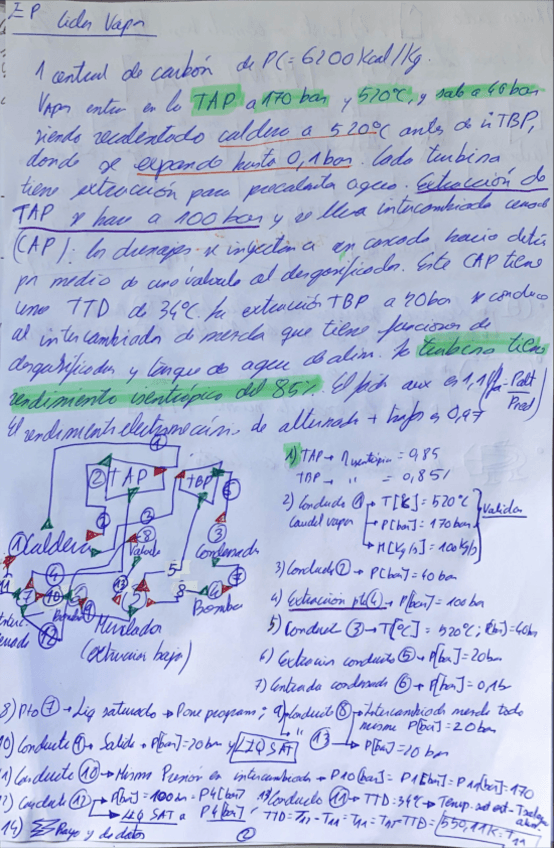 Vapor
1 central de carbón de PC=6200 Kcal/Kg.
Vapor entra en la TAP a 170 bar y 520ºC, y sale a 40 bar
siendo recalentado caldera a 520ºC antes de ir TBP,
donde se expande hasta 0,1bar. Cada turbina
tiene extracción para precalentar agua. Extracción de
TAP se hace a 100 bar y se lleva intercambiador cerrado
(CAP). los drenajes se inyectan a en cascada hacia detrás
por medio de una válvula al desgasificador. Este CAP tiene
una TTD de 34ºC. La extracción TBP a 20bar se conduce
al intercambiador de mezcla que tiene funciones de
desgasificador y tanque de agua de alim. la turbina tiene
rendimiento isentrópico del 85%. El aux es 1,1
El rendimiento electromecánico de alternador + es 0,97
TAP
TBP
Caldera
Válvula
Condensador
Bomba
Bomba
Mezclador
(extracción bajo)
1) TAP → η isentrópico = 0,85
TBP → " = 0,85
2) Conducto 1 → T[ºC] = 520ºC
Caudal vapor → P[bar] = 170bar
→ M[Kg/s] = 100Kg/s
Validar
3) Conducto 2 → P[bar] = 40 bar
4) Extracción pto(4) → P[bar] = 100bar
5) Conducto 3 → T[ºC] = 520ºC; P[bar] = 40bar
6) Extracción conducto 5 → P[bar] = 20bar
7) Entrada condensador 6 → P[bar] = 0,1bar
8) Pto 7 → Liq saturado → Pone programa; 9) Conducto 8 → Intercambiador mezcla todo
misma P[bar] = 20bar
13 → P[bar] = 20 bar
10) Conducto 9 → Salida → P[bar] = 20 bar y LIQ SAT
11) Conducto 10 → Misma Presión en intercambiador → P10[bar] = P1[bar] = P11[bar] = 170
12) Conducto 12 → P[bar] = 100bar = P4[bar]
→ LIQ SAT a P4[bar]
13) Conducto 11 → TTD = 34ºC → Temp. sat ext - T salida
14) y de datos
2